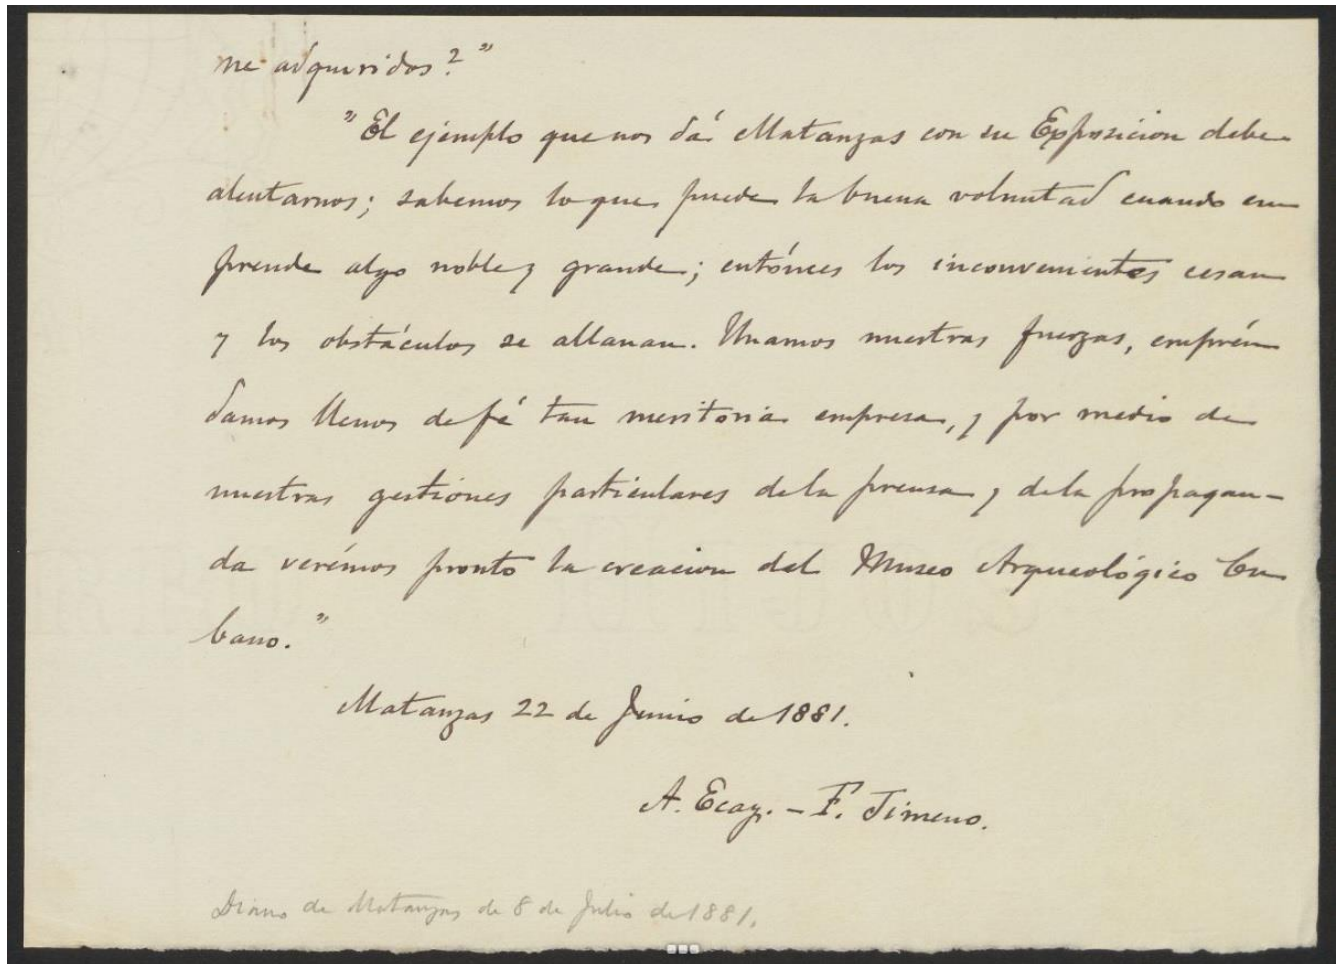 me adqueridos?"
"El ejemplo que nos dá Matanzas con su Exposicion debe
alentarnos; sabemos lo que puede la buena voluntad cuando em
prende algo noble y grande; entónces los inconvenientes cesan
y los obstáculos se allanan. Unamos nuestras fuerzas, emprén
damos llenos de fé tan meritoria empresa, y por medio de
nuestras gestiones particulares de la prensa y de la propagan-
da verémos pronto la creacion del Museo Arqueológico Cu
bano."
Matanzas 22 de Junio de 1881.
A. Ecay. - F. Jimeno.
Diario de Matanzas de 8 de Julio de 1881.